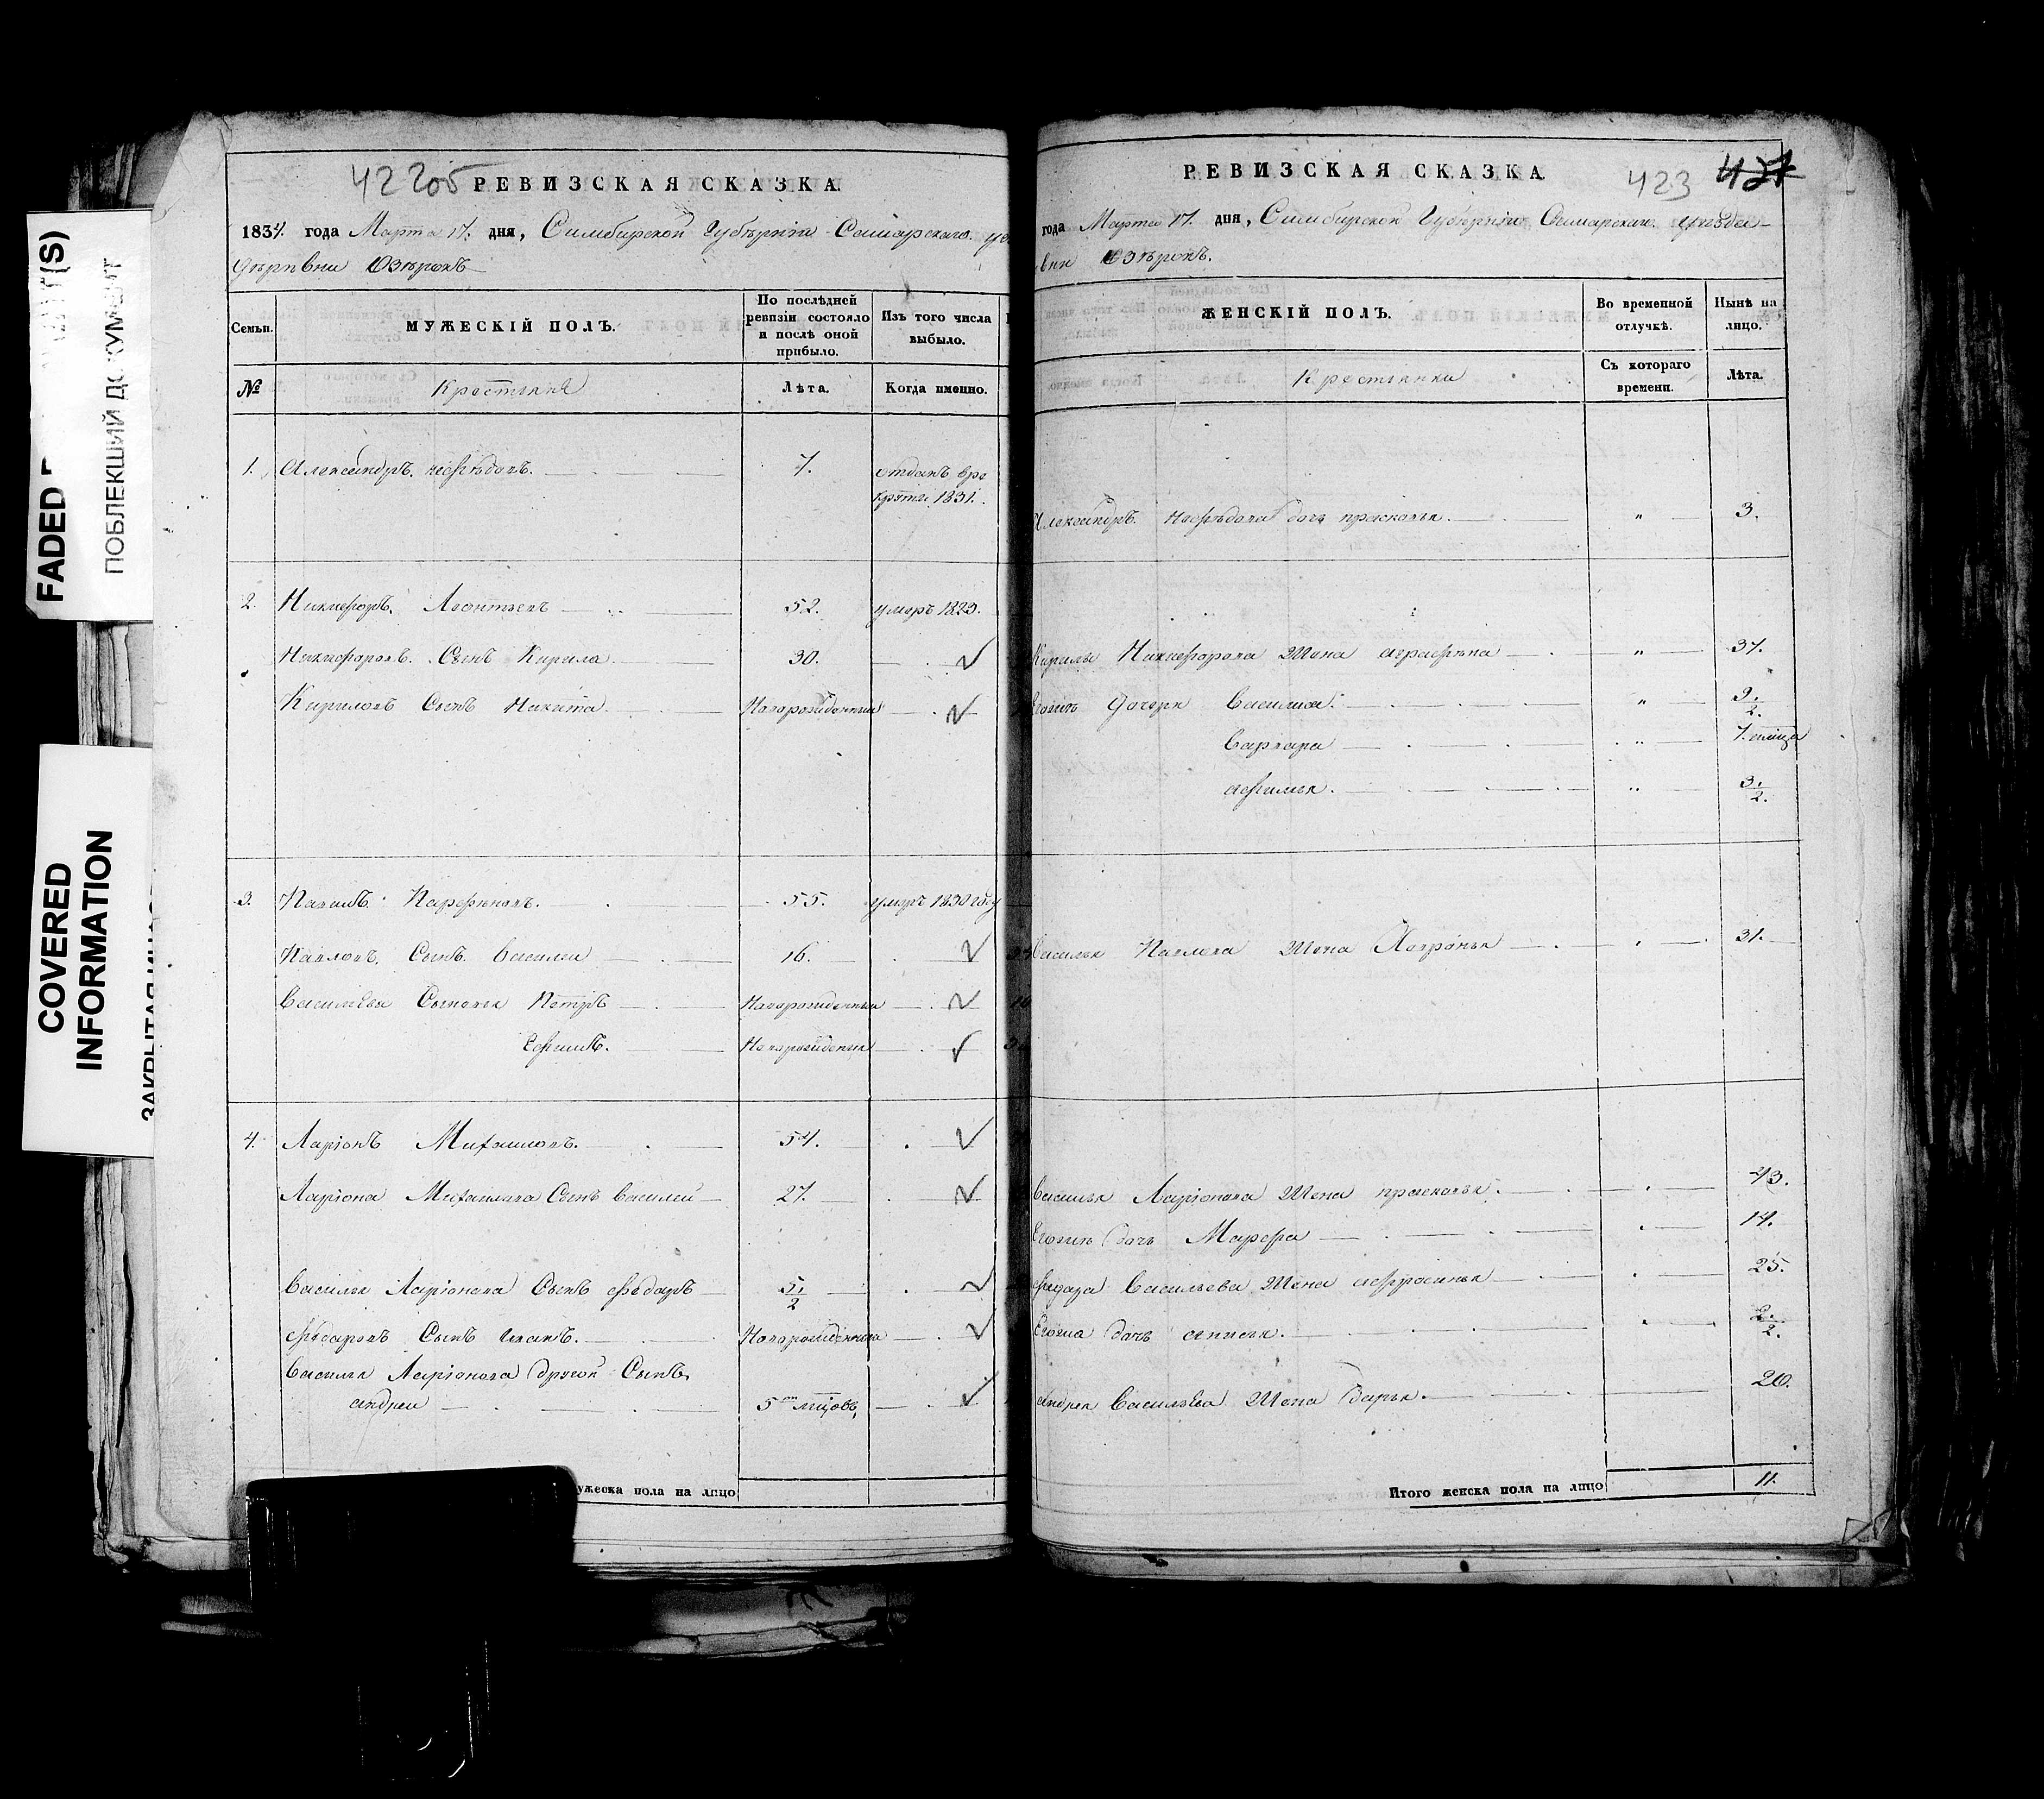 FADED
ПОБЛЕКШИЙ ДОКУМЕНТ
COVERED
INFORMATION
42205 РЕВИЗСКАЯ СКАЗКА.
1834. года Марта 17. дня, Симбирской Губѣрніи Самарскаго.
Дѣрѣвни Озѣрокъ
Семьи.
МУЖЕСКІЙ ПОЛЪ.
По послѣдней
ревизіи состояло
и послѣ оной
прибыло.
Изъ того числа
выбыло.
№
Крестьянѣ
Лѣта.
Когда именно.
1. Александръ нефѣдовъ. 7. отданъ вре
круты 1831.
2. Никифоръ. Леонтьевъ 52. умеръ 1823.
Никифоровъ. Сынъ Кирила 30.
Кириловъ Сынъ Никита Новорожденный
3. Павелъ Парфѣновъ. 55. умеръ 1830 году
Павловъ. Сынъ. Василеи 16.
Васильева Сыновья Петръ Новорожденный
Ефимъ. Новорожденный
4. Ларіонъ Михаиловъ. 54.
Ларіона Михаилова Сынъ Василеи 27.
Василья Ларіонова Сынъ Фѣдоръ 5/2
Фѣдоровъ Сынъ Иванъ. Новорожденный
Василья Ларіонова другой Сынъ
андреи 5 ти мцовъ
ужеска пола на лицо
РЕВИЗСКАЯ СКАЗКА. 423
года Марта 17. дня, Симбирской Губѣрніи Самарскаго. уѣзда
вни Озѣрокъ.
ЖЕНСКІЙ ПОЛЪ.
Во временной
отлучкѣ.
Нынѣ на
лицо.
Крестьянки
Съ котораго
времени.
Лѣта.
Александръ. Нефѣдова дочь прасковья. " 3.
Кирилы Никифорова Жена аграфѣна " 37.
Евоинъ Дочери Василиса. " 9/2.
Варвара " 7. мѣсяца
афимья. " 3/2.
Василья Павлова Жена Хавронья " 31.
Василья Ларіонова Жена прасковья. " 43.
Евоинъ дочь Марфа " 14.
Фѣдора Васильева Жена афросинья " 25.
Евоина дочь анисья. " 2/2.
Андрея Васильева Жена дарья. 20.
Итого женска пола на лицо 11.